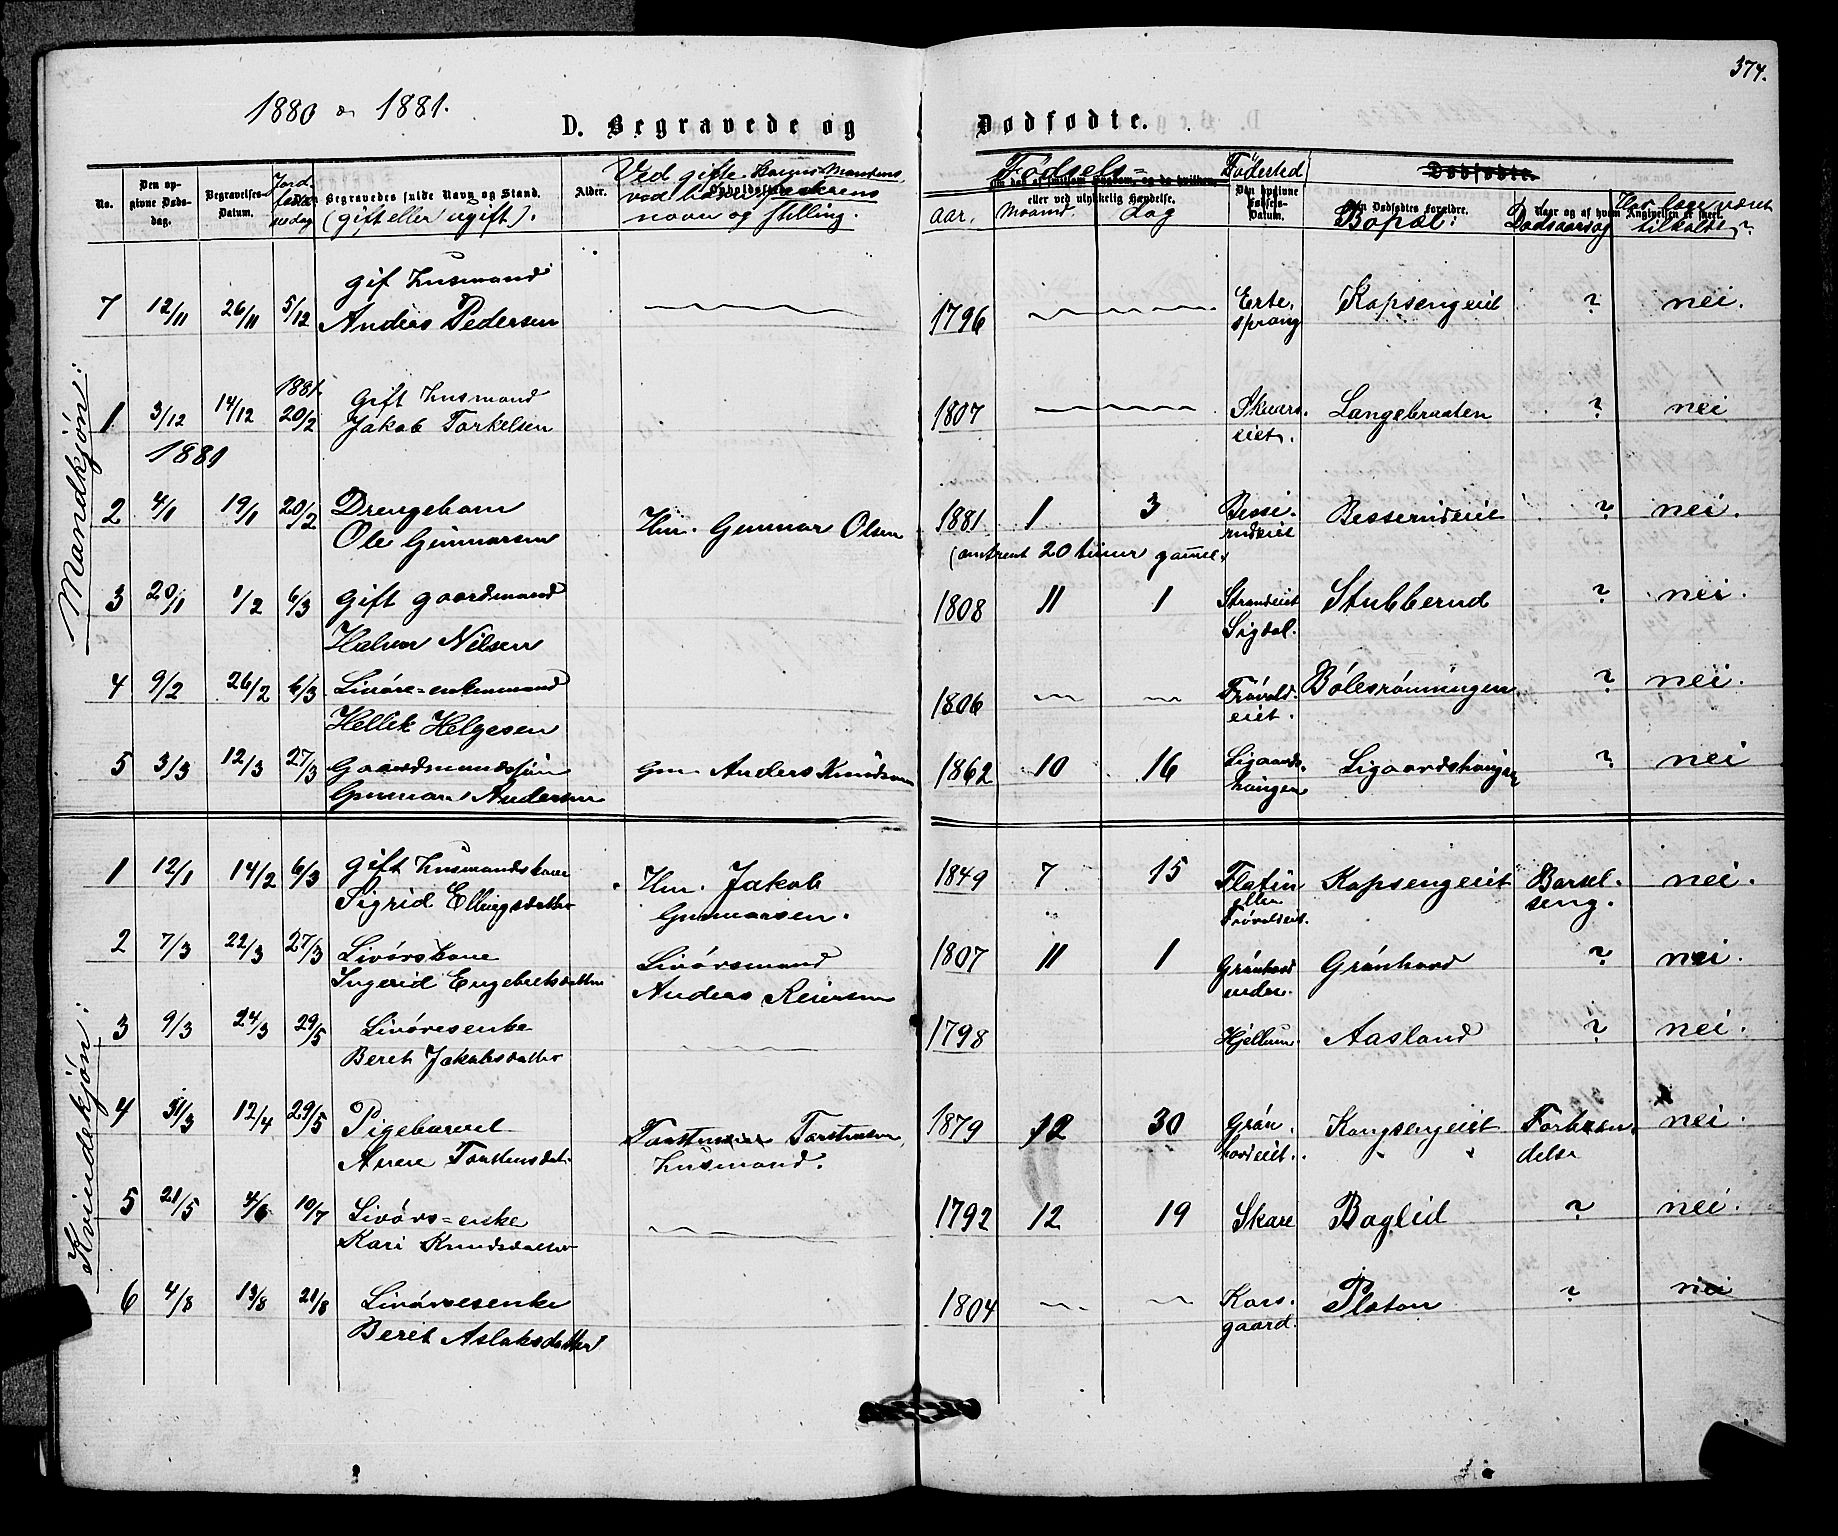 374.
1880 & 1881.
D. Begravede og Dødfødte.
No.
Den opgivne Døds-dag.
Begravelses-Datum.
Jord-fæstelsesdag
Begravedes fulde Navn og Stand.
(gift eller ugift).
Alder.
Ved gifte Koner Mandens, ved børn faderens navn og stilling.
Fødsels-
aar. Maaned dag
Fødested
Dødfødte.
Bopæl:
Dødsaarsag
Har læge været tilkaldt?
Mandkjøn:
7 12/11 26/11 5/12 gift Husmand Anders Pedersen 1796 Ertesprang Kapsengeiet ? nei.
1 3/12 14/12 1881. 20/2 gift Husmand Jakob Torkelsen 1807 Skarseiet. Langebraaten ? nei
1881
2 4/1 19/1 20/2 Drengebarn Ole Gunnarsen Hm. Gunnar Olsen 1881 1 3 Besserudeiet Besserudeiet ? nei.
(omtrent 20 timer gammel.)
3 20/1 1/2 6/3 gift gaardmand Halvor Nilsen 1808 11 1 Strandeiet Sigdal. Stubberud ? nei.
4 9/2 26/2 6/3 Livøre-enkemand Hellik Helgesen 1806 Frøvoldeiet. Bølesrønningen ? nei.
5 3/3 12/3 27/3 Gaardmandssøn Gunnar Andersen Gm. Anders Knudsen 1862 10 16 Ligaardshaugen Ligaardshaugen ? nei
Kvindekjøn:
1 12/1 14/2 6/3 gift Husmandskone Sigrid Ellingsdatter Hm. Jakob Gunnarsen. 1849 7 15 Flatin eller Frøvoldeiet. Kapsengeiet Barselseng. nei.
2 7/3 22/3 27/3 Livørskone Ingerid Engebretsdatter Livørsmand Anders Reiersen 1807 11 1 Grønhovd nedre. Grønhovd ? nei.
3 9/3 24/3 29/5 Livøresenke Beret Jakobsdatter 1798 Hjellum. Aasland ? nei.
4 31/3 12/4 29/5 Pigebarnet Anne Torstensdat. Torstensen Husmand. 1879 12 30 Grønhovdeiet. Kongsengeiet Forbrændelse nei.
5 21/5 4/6 10/7 Livørs-enke Kari Knudsdatter 1792 12 19 Skare Baglid ? nei.
6 4/8 13/8 21/8 Livøresenke Beret Aslaksdatter 1804 Korsgaard. Platon ? nei